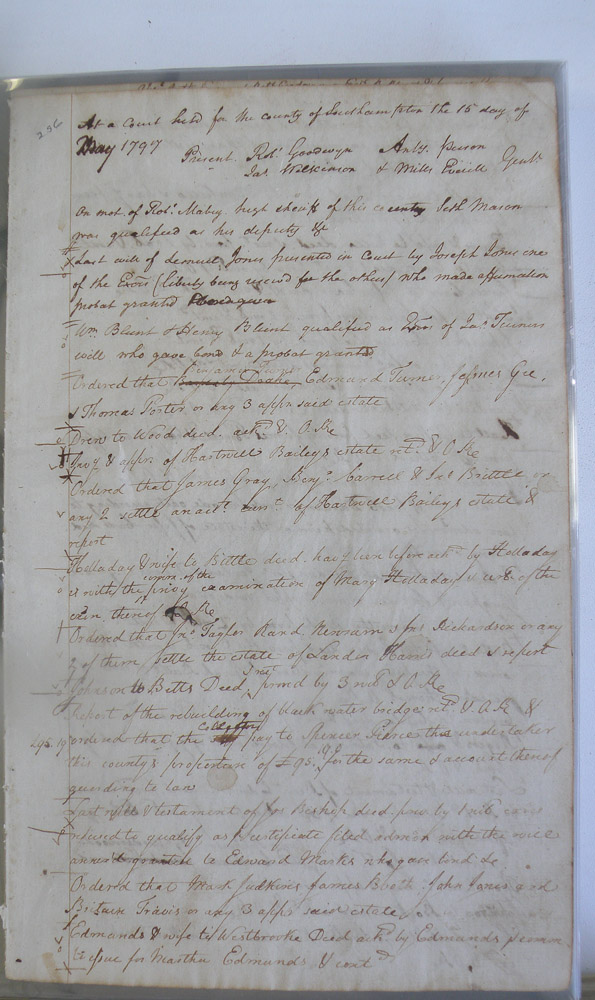 236
At a Court held for the county of Southampton the 15 day of
May 1797
Present Robt. Goodwyn Anty. Person
Jas. Wilkinson & Miles Everitt Gentn.
On mot. of Robt. Mabry high sheriff of this county Seth Mason
was qualified as his deputy &c
Last will of Jones presented in Court by Joseph Jones one
of the Exors (liberty being reserd for the others) who made affirmation
probat granted
Wm. Blunt & Henry Blunt qualified as Exors of Jas. Turners
will who gave bond & a probat granted
Benjamin Turner
Ordered that Edmund Turner, James Gee,
& Thomas Porter or any 3 appr said estate
Drew to Wood deed ackd. & O.Re
Invy & appr. of Hartwell Baileys estate retd. & O Re
Ordered that James Gray, Benjn. Barrell & Jas Brittle or
any 2 settle an acct. curt. of Hartwell Baileys estate &
report
Holladay & wife to Brittle deed havg been before ackd by Holladay
comn. of the
is with the privy examination of Mary Holladay & cert of the
exn. thereof O Re
Ordered that Jno. Taylor Rand. Newsum & Jas Richardson or any
2 of them settle the estate of Landon Harris deed & report
Johnson to Betts Deed, provd by 3 wits & O Re
Report of the rebuilding of black water bridge retd. & O.Re &
Collector
£95.19 ordered that the pay to Spencer Pierce the undertaker
this county's proportion of £95.19 for the same & account thereof
according to law
Last will & testament of Jos Bishop deed prov by 1 wit, exors
refused to qualify as certificate filed admon with the will
annexd granted to Edward Marks who gave bond &c
Ordered that Mark Judkins James Booth, John Jones and
Travis or any 3 appr said estate
Edmunds & wife to Westbrooke Deed ackd by Edmunds & comn.
to issue for Martha Edmunds & contd